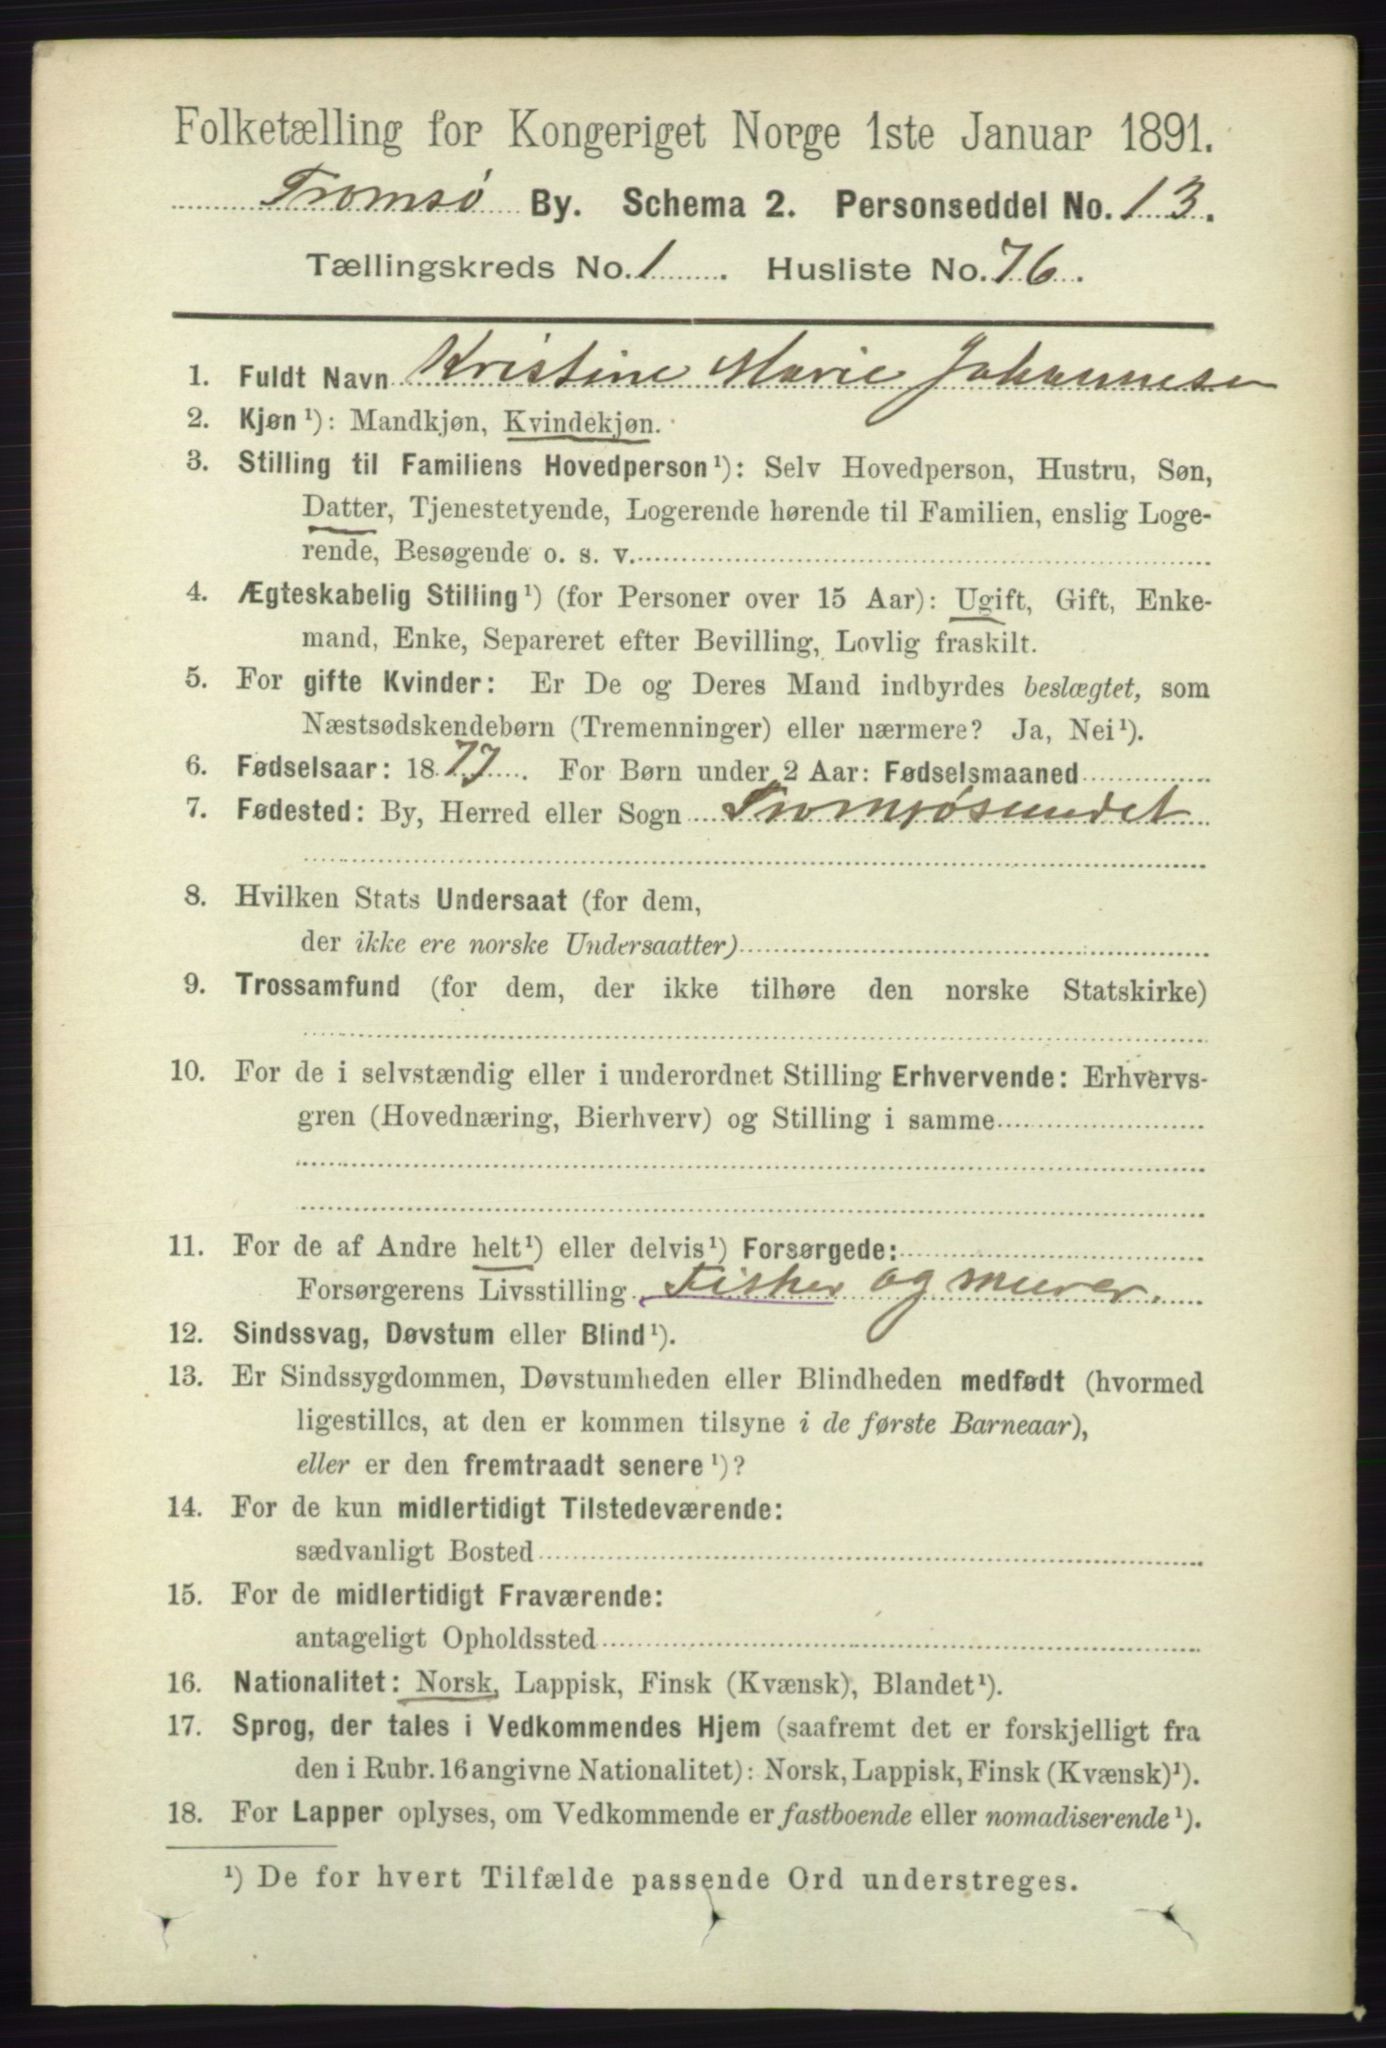 Folketælling for Kongeriget Norge 1ste Januar 1891.
Tromsø By. Schema 2. Personseddel No. 13.
Tællingskreds No. 1. Husliste No. 76.
1. Fuldt Navn Kristine Marie Johannesen
2. Kjøn¹): Mandkjøn, Kvindekjøn.
3. Stilling til Familiens Hovedperson¹): Selv Hovedperson, Hustru, Søn,
Datter, Tjenestetyende, Logerende hørende til Familien, enslig Loge-
rende, Besøgende o. s. v.
4. Ægteskabelig Stilling¹) (for Personer over 15 Aar): Ugift, Gift, Enke-
mand, Enke, Separeret efter Bevilling, Lovlig fraskilt.
5. For gifte Kvinder: Er De og Deres Mand indbyrdes beslægtet, som
Næstsødskendebørn (Tremenninger) eller nærmere? Ja, Nei¹).
6. Fødselsaar: 1877. For Børn under 2 Aar: Fødselsmaaned
7. Fødested: By, Herred eller Sogn Tromsøsundet
8. Hvilken Stats Undersaat (for dem,
der ikke ere norske Undersaatter)
9. Trossamfund (for dem, der ikke tilhøre den norske Statskirke)
10. For de i selvstændig eller i underordnet Stilling Erhvervende: Erhvervs-
gren (Hovednæring, Bierhverv) og Stilling i samme
11. For de af Andre helt¹) eller delvis¹) Forsørgede:
Forsørgerens Livsstilling Fisker og murer.
12. Sindssvag, Døvstum eller Blind¹).
13. Er Sindssygdommen, Døvstumheden eller Blindheden medfødt (hvormed
ligestilles, at den er kommen tilsyne i de første Barneaar),
eller er den fremtraadt senere¹)?
14. For de kun midlertidigt Tilstedeværende:
sædvanligt Bosted
15. For de midlertidigt Fraværende:
antageligt Opholdssted
16. Nationalitet: Norsk, Lappisk, Finsk (Kvænsk), Blandet¹).
17. Sprog, der tales i Vedkommendes Hjem (saafremt det er forskjelligt fra
den i Rubr. 16 angivne Nationalitet): Norsk, Lappisk, Finsk (Kvænsk)¹).
18. For Lapper oplyses, om Vedkommende er fastboende eller nomadiserende¹).
¹) De for hvert Tilfælde passende Ord understreges.